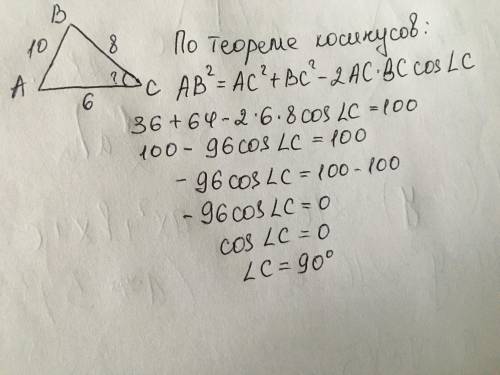 B
10 8
A 6 ? C
По теореме косинусов:
AB² = AC² + BC² - 2AC·BC cos∠C
36 + 64 - 2·6·8 cos∠C = 100
100 - 96 cos∠C = 100
- 96 cos∠C = 100 - 100
- 96 cos∠C = 0
cos∠C = 0
∠C = 90°